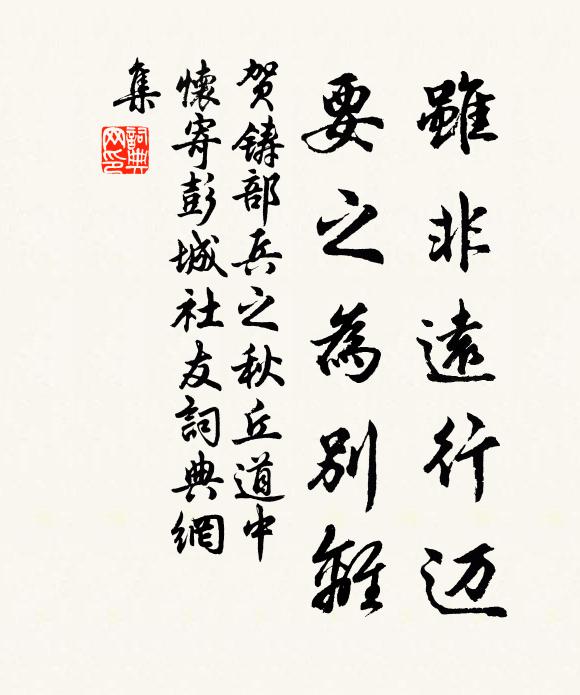 雖非遠行迈
要之為別離
賀鑄部兵之秋丘道中
懷寄彭城社友詞典網
集
詞典网印